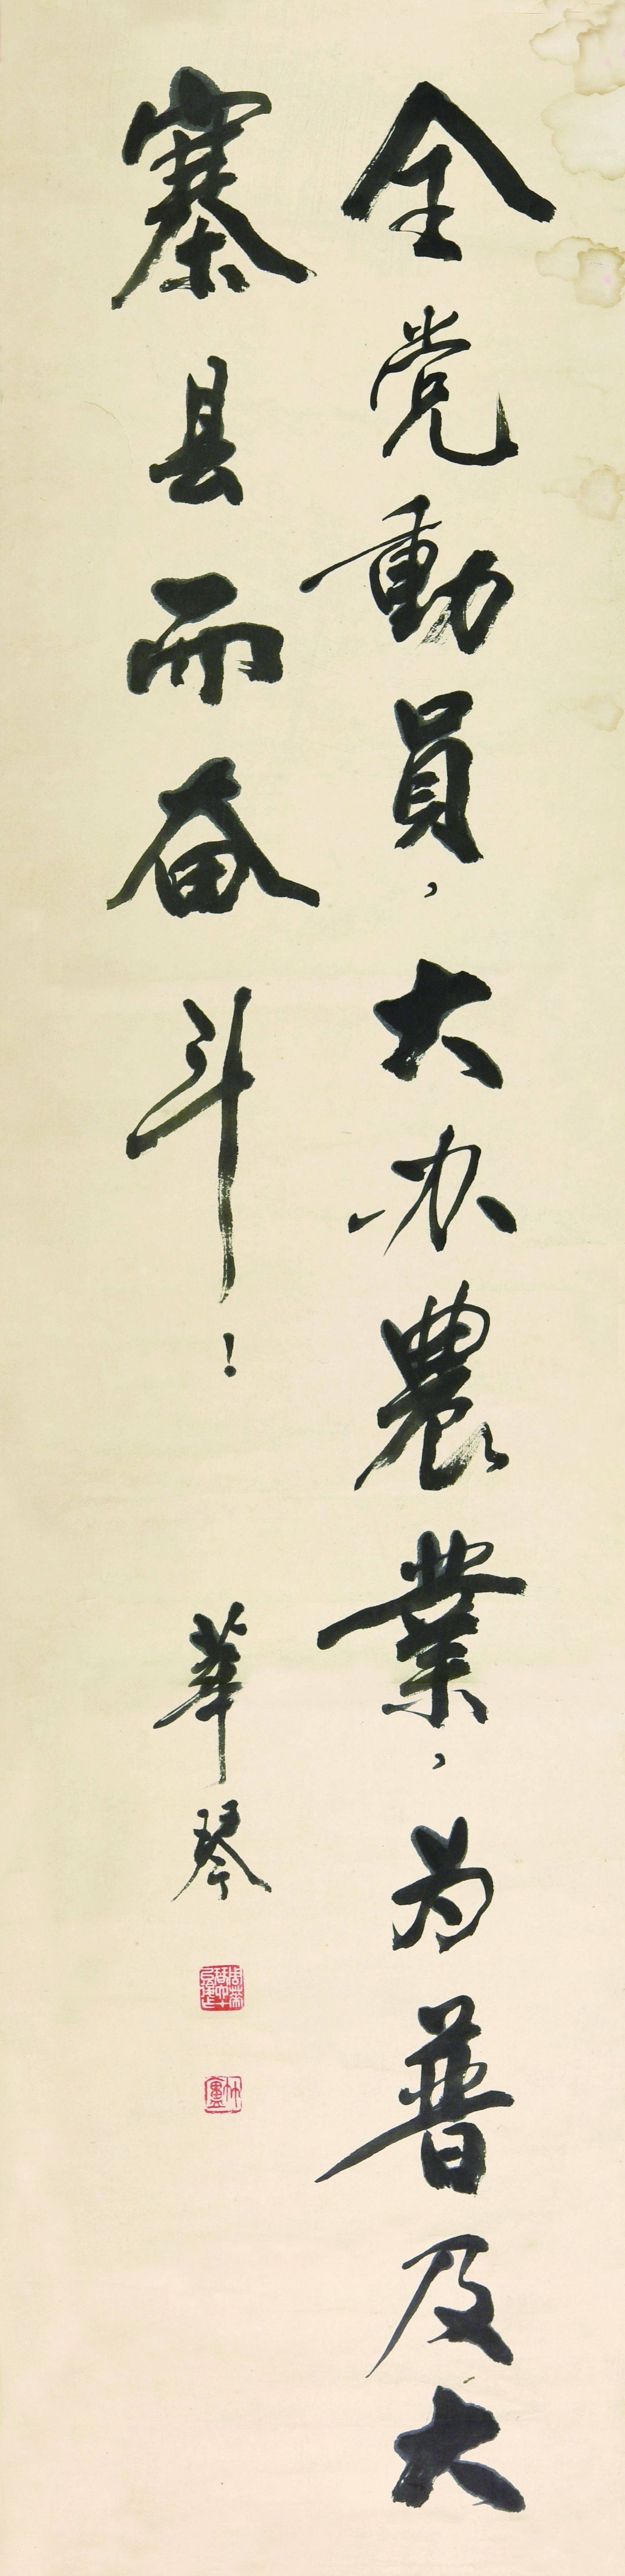 全党動員，大办農業，为普及大
寨县而奋斗！
華琴